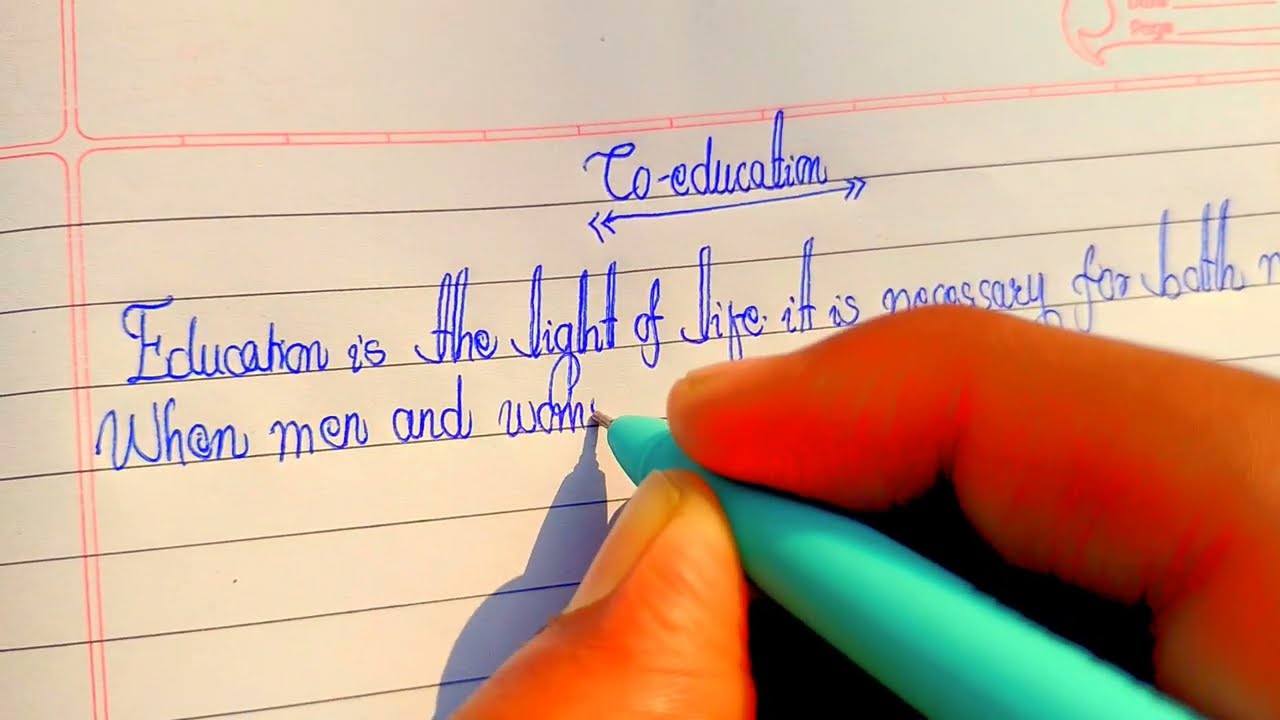 Page
Co-education
Education is the light of life. it is necessary for both
When men and